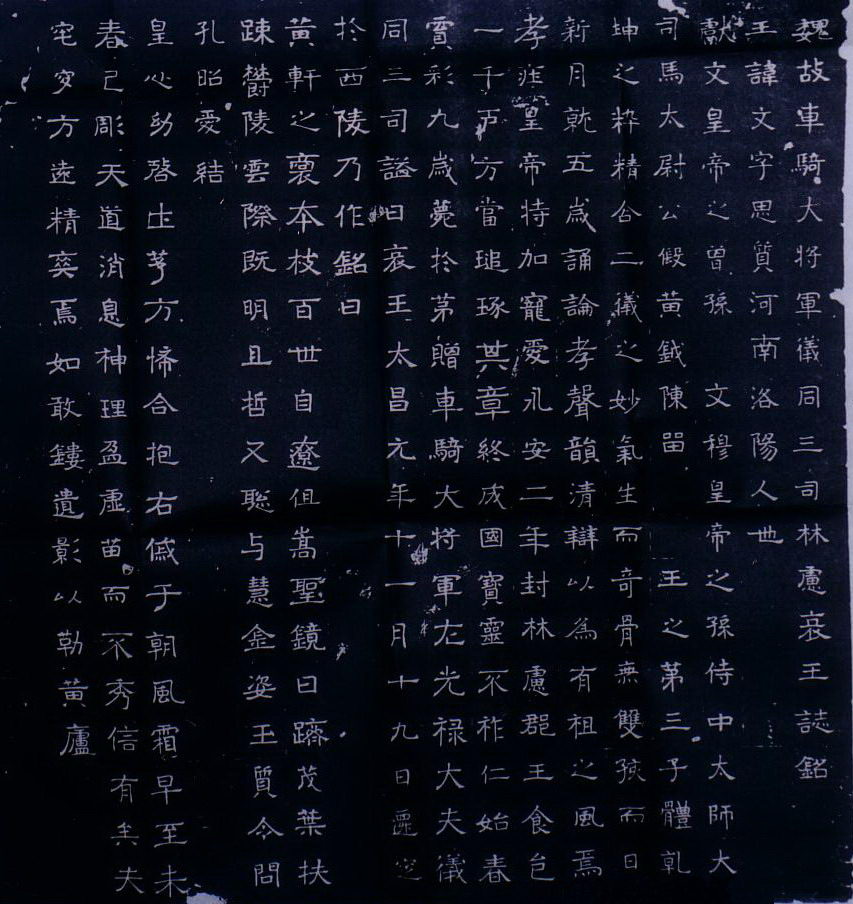 魏故車騎大將軍儀同三司林慮哀王誌銘
王諱文字思質河南洛陽人也
獻文皇帝之曾孫 文穆皇帝之孫侍中太師大
司馬太尉公假黃鉞陳留 王之第三子體乹
坤之粹精含二儀之妙氣生而奇骨無雙孩而日
新月就五歲誦論孝聲韻清辯以為有祖之風焉
孝莊皇帝特加寵愛永安二年封林慮郡王食邑
一千戶方當琢其章終成國寶靈不祚仁始春
賓彩九歲薨於第贈車騎大將軍左光祿大夫儀
同三司謚曰哀王太昌元年十一月十九日遷窆
於西陵乃作銘曰
黃軒之裔本枝百世自遼徂嵩聖鏡日躋茂葉扶
踈欝陵雲際既明且哲又聡与慧金姿玉質令問
孔昭愛結
皇心幼啓土茅方悕合抱右于朝風霜早至未
春已彫天道消息神理盈虛苗而不秀信有矣夫
窀穸方遠精爽焉如敢鏤遺影以勒黃廬